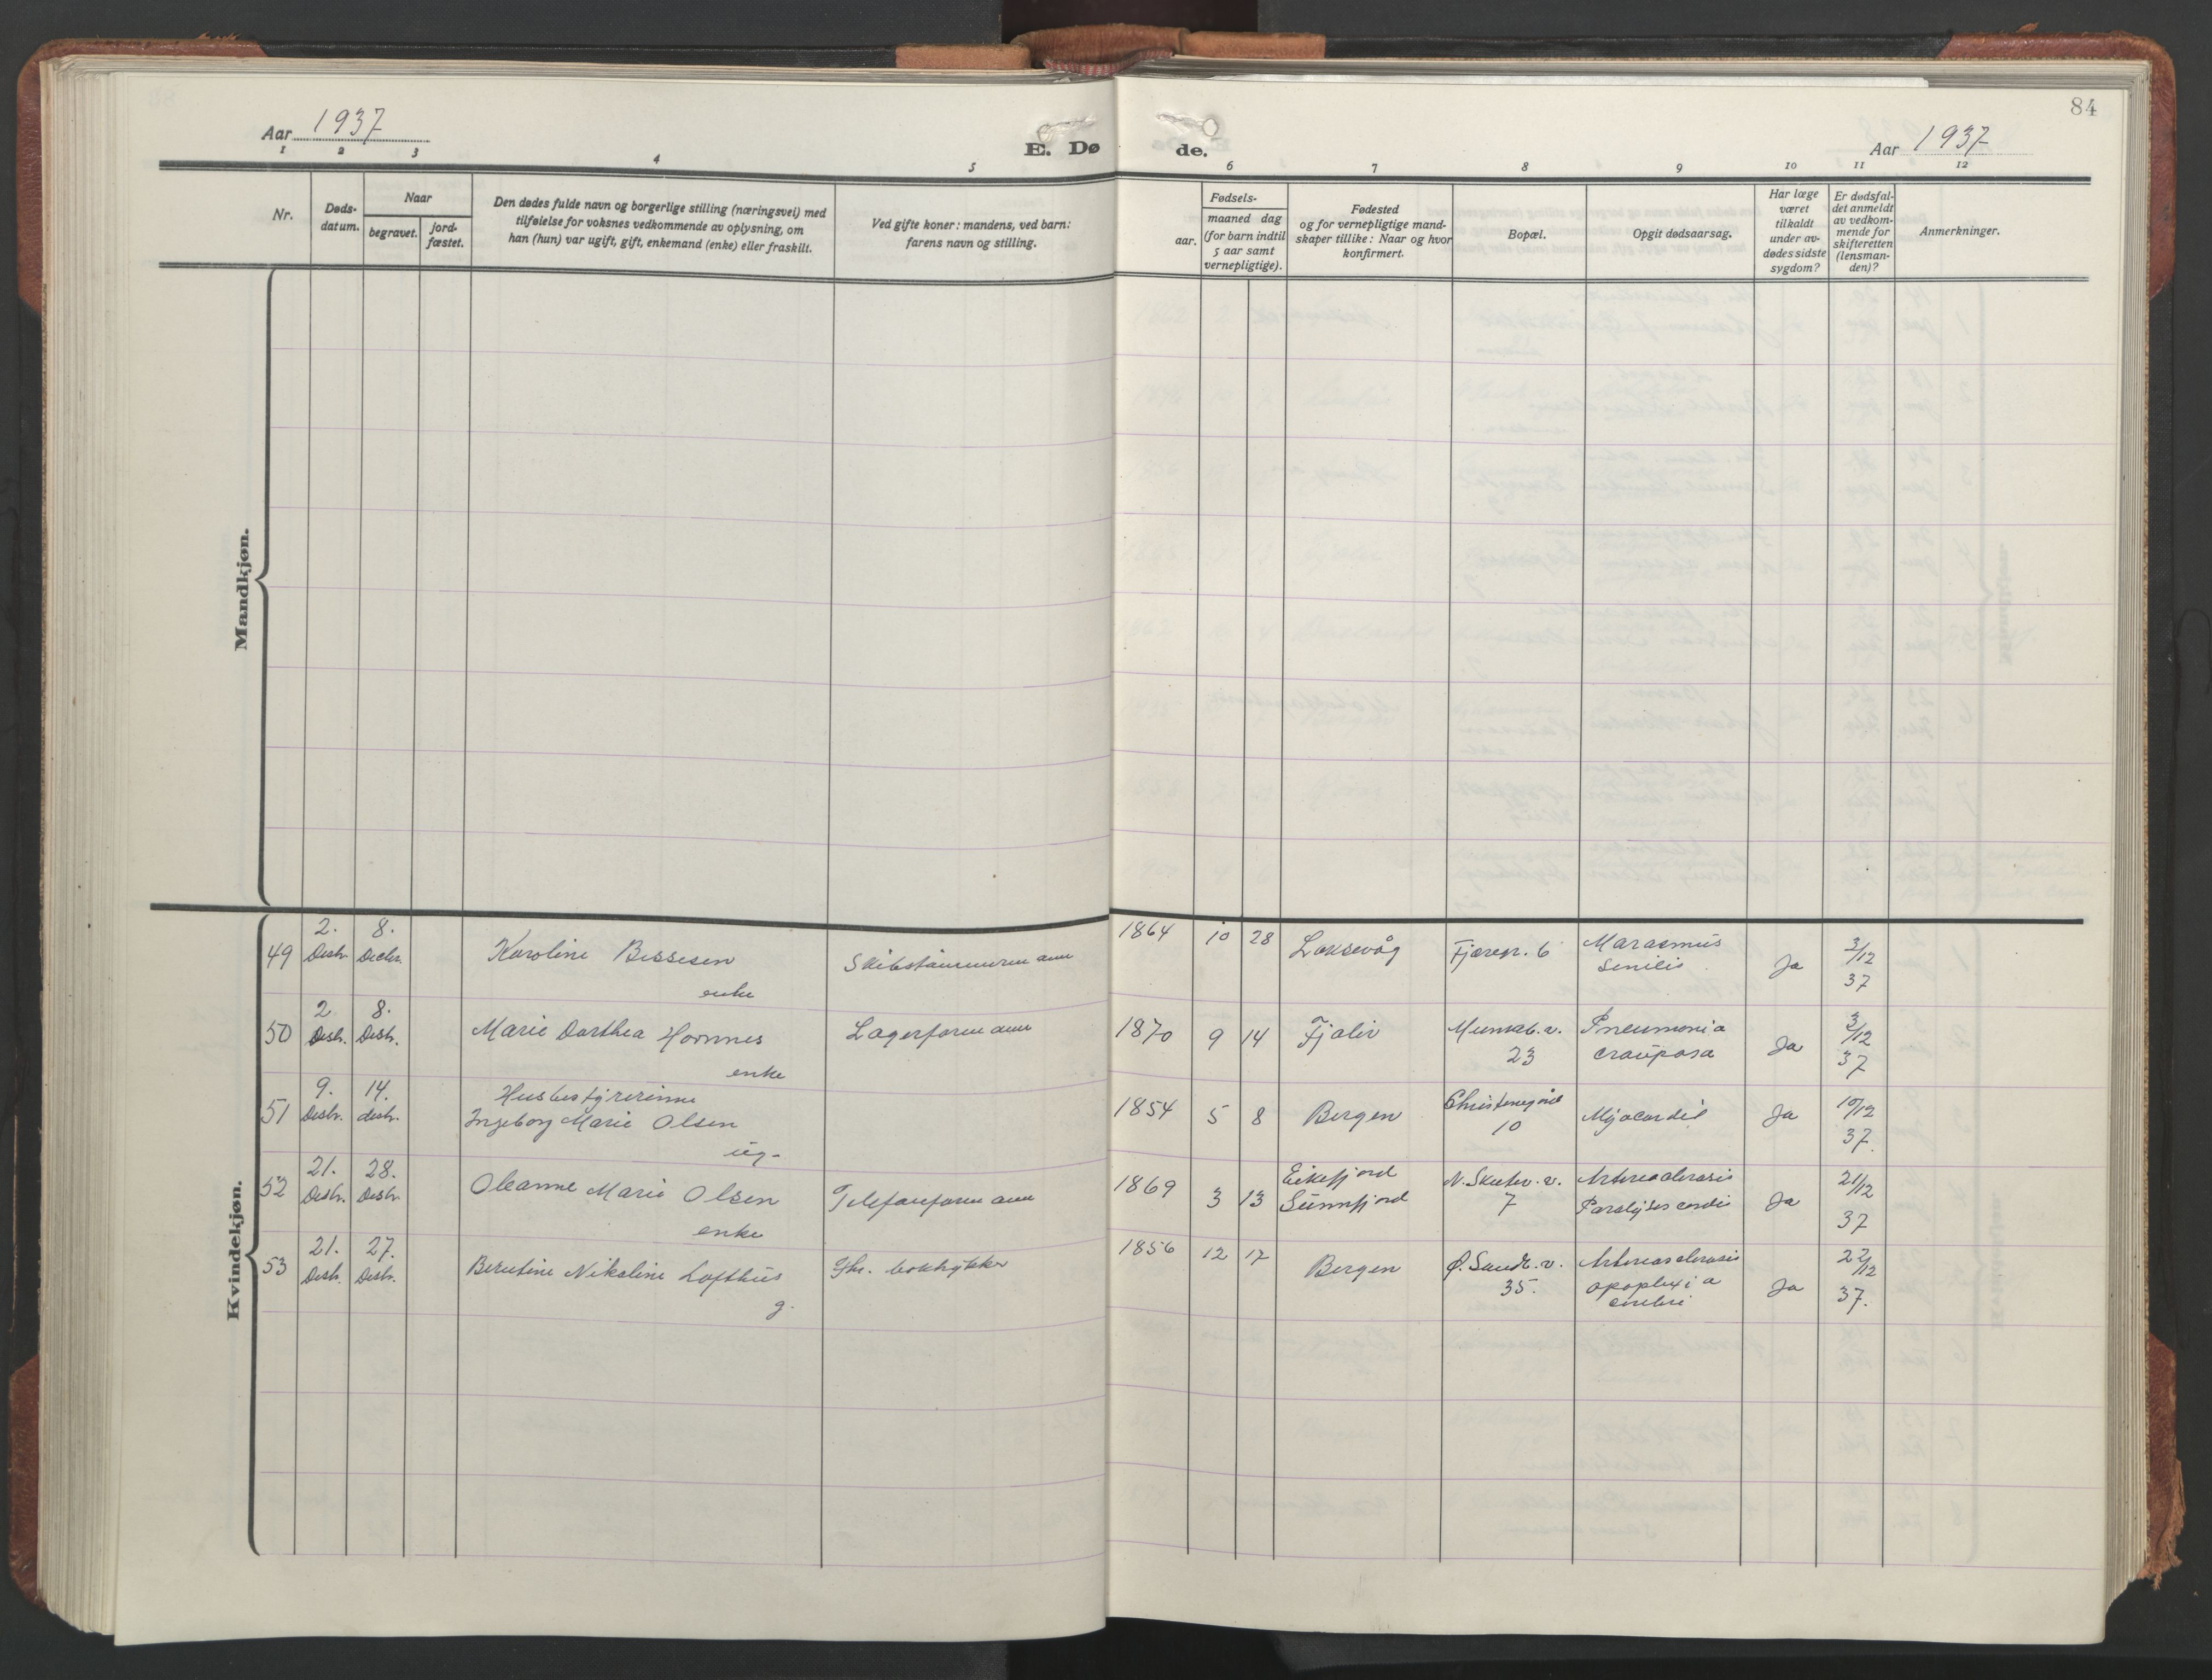 84
Aar 1937
E. Dø
de.
Aar 1937
1 2 3 4 5
6 7 8 9 10 11 12
Nr.
Døds-
datum.
Naar
begravet.
jord-
fæstet.
Den dødes fulde navn og borgerlige stilling (næringsvei) med
tilføielse for voksnes vedkommende av oplysning, om
han (hun) var ugift, gift, enkemand (enke) eller fraskilt.
Ved gifte koner: mandens, ved barn:
farens navn og stilling.
Fødsels-
aar.
maaned dag
(for barn indtil
5 aar samt
vernepligtige).
Fødested
og for vernepligtige mand-
skaper tillike: Naar og hvor
konfirmert.
Bopæl.
Opgit dødsaarsag.
Har læge
været
tilkaldt
under av-
dødes sidste
sygdom?
Er dødsfal-
det anmeldt
av vedkom-
mende for
skifteretten
(lensman-
den)?
Anmerkninger.
Mandkjøn.
Kvindekjøn.
49
2.
Desbr.
8.
Decbr.
Karoline Bessesen
enke
1864
10
28
Laksevåg
Fjæregr. 6
Marasmus
Senilis
Ja
3/12
37
50
2
Desbr.
8.
Desbr.
Marie Dorthea Hornnes
enke
Lagerformann
1870
9
14
Fjaler
Munkeb. v.
23
Pneumonia
crouposa
Ja
3/12
37
51
9.
Desbr.
14.
desbr.
Husbestyrerinne
Ingeborg Marie Olsen
ug.
1854
5
8
Bergen
10
Myocardit
Ja
10/12
37.
52
21.
Desbr.
28.
Desbr.
Oleanne Marie Olsen
enke
Telefonformann
1869
3
13
Eikefjord
Sunnfjord
N. Skutev. v.
7
Arteriosclerosis
Paralyses cordis
Ja
21/12
37
53
21.
Desbr.
27.
Desbr.
Berntine Nikoline Lofthus
g.
boktrykker
1856
12
17
Bergen
Ø. Sandv. v.
35.
Arteriosclerosis
apoplexia
cerebri
Ja
22/12
37.